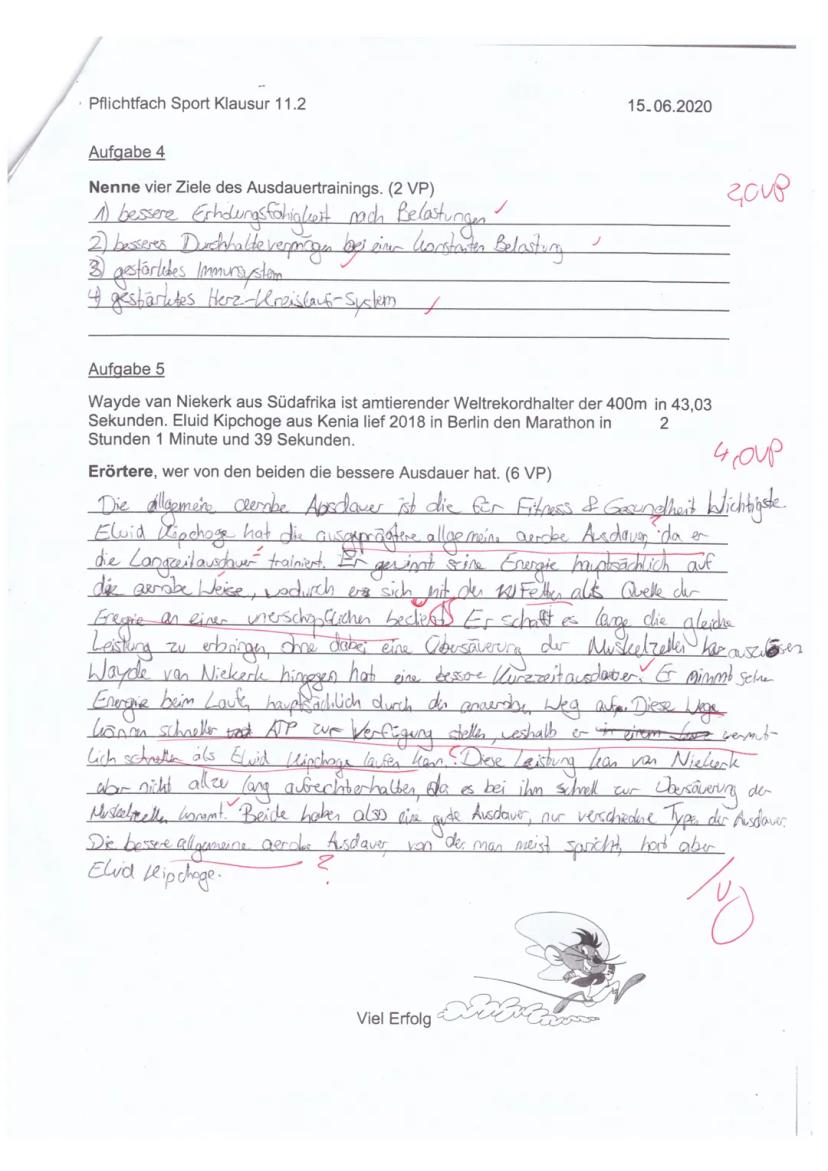 Pflichtfach Sport Klausur 11.2 15.06.2020
Aufgabe 4
Nenne vier Ziele des Ausdauertrainings. (2 VP) 2,0VP
1) bessere Erholungsfähigkeit nach Belastungen
2) besseres Durchhaltevermögen bei einer konstanten Belastung
3) gestärktes Immunsystem
4) gestärktes Herz-Kreislauf-System
Aufgabe 5
Wayde van Niekerk aus Südafrika ist amtierender Weltrekordhalter der 400m in 43,03
Sekunden. Eluid Kipchoge aus Kenia lief 2018 in Berlin den Marathon in 2
Stunden 1 Minute und 39 Sekunden.
4,0VP
Erörtere, wer von den beiden die bessere Ausdauer hat. (6 VP)
Die allgemeine aerobe Ausdauer ist die für Fitness & Gesundheit Wichtigste.
Elwid Kipchoge hat die ausgeprägtere allgemeine aerobe Ausdauer, da er
die Langzeitausdauer trainiert. Er gewinnt seine Energie hauptsächlich auf
die aerobe Weise, wodurch er sich mit den Fetten als Quelle der
Energie an einer unerschöpflichen bedient. Er schafft es lange die gleiche
Leistung zu erbringen, ohne dabei eine Übersäuerung der Muskelzellen auszulösen
Wayde van Niekerk hingegen hat eine bessere Kurzzeitausdauer. Er nimmt seine
Energie beim Laufen hauptsächlich durch den anaeroben Weg auf. Diese Wege
können schneller ATP zur Verfügung stellen, weshalb er vermut-
lich schneller als Elwid Kipchoge laufen kann. Diese Leistung kan van Niekerk
aber nicht allzu lang aufrechterhalten, da es bei ihm schnell zur Übersäuerung der
Muskelzellen kommt. Beide haben also eine gute Ausdauer, nur verschiedne Typen der Ausdauer.
Die bessere allgemeine aerobe Ausdauer, von der man meist spricht, hat aber
Elwid Kipchoge. ?
Viel Erfolg